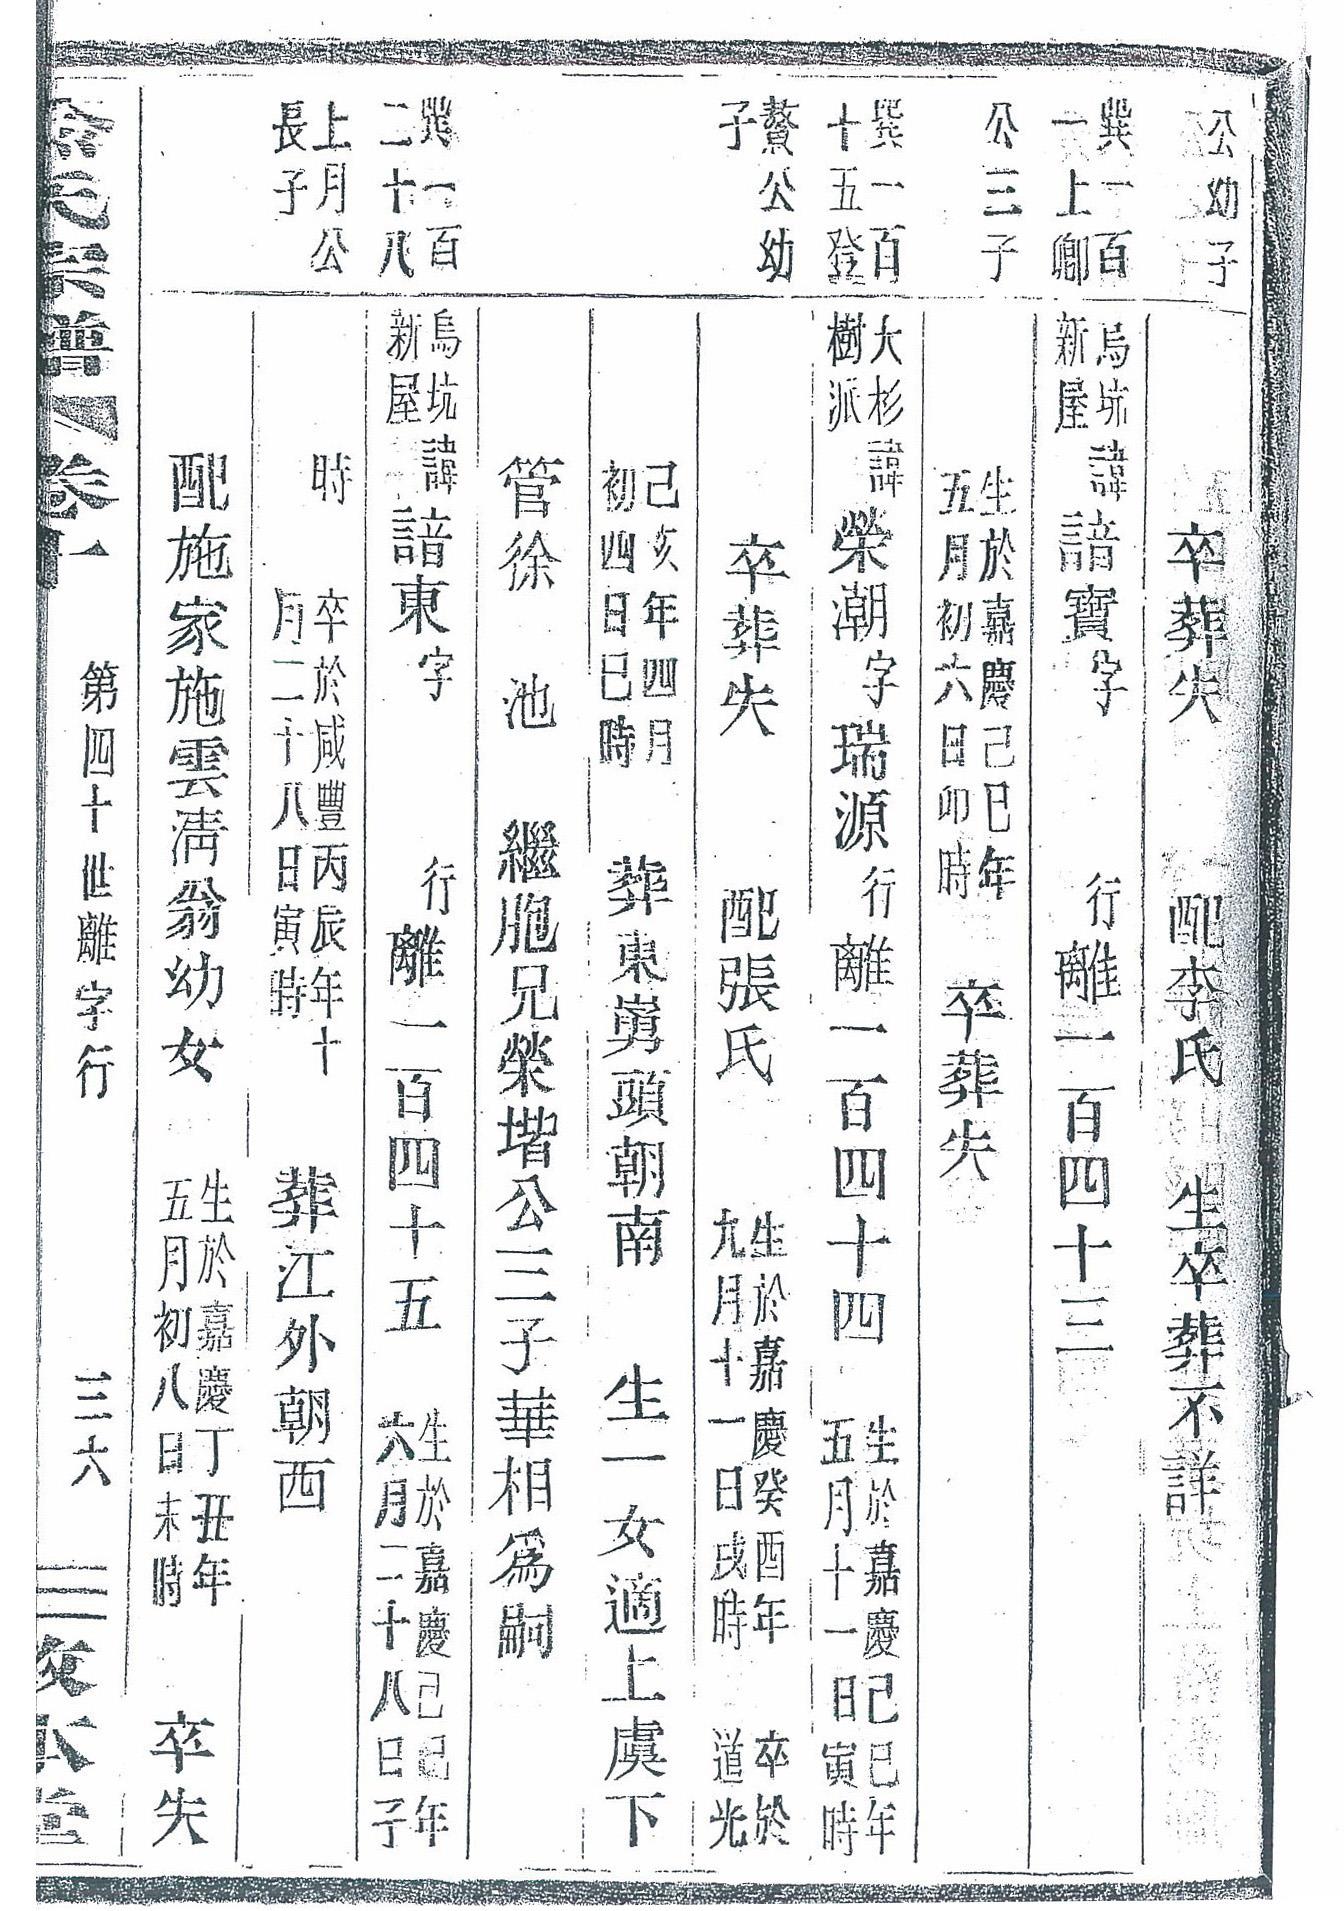 公幼子
卒葬失 配李氏 生卒葬不詳
巽一百
一上卿
公三子
烏坑
新屋
諱諳寶字 行離一百四十三
生於嘉慶己巳年
五月初六日卯時
卒葬失
巽一百
十五登
贅公幼
子
大杉
樹派
諱榮潮字瑞源行離一百四十四
生於嘉慶己巳年
五月十一日寅時
卒葬失 配張氏
生於嘉慶癸酉年
九月十一日戌時
卒於
道光
己亥年四月
初四日巳時
葬東嵭頭朝南 生一女適上虞下
管徐 池 繼胞兄榮堦公三子華相為嗣
巽一百
二十八
上月公
長子
烏坑
新屋
諱諳東字 行離一百四十五
生於嘉慶己巳年
六月二十八日子
時
卒於咸豐丙辰年十
月二十八日寅時
葬江外朝西
配施家施雲清翁幼女
生於嘉慶丁丑年
五月初八日未時
卒失
氏宗譜 卷十一 第四十世離字行 三六 敦本堂